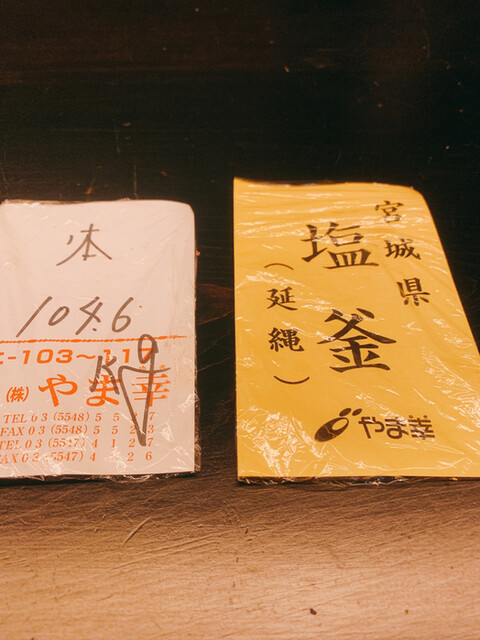 本
104.6
-103~117
(株)やま幸
TEL 03 (5548) 5
FAX 03 (5548) 5
TEL 03 (5547) 4 1 2
FAX 03 (5547) 4 2 6
宮城県
塩釜
(延縄)
やま幸